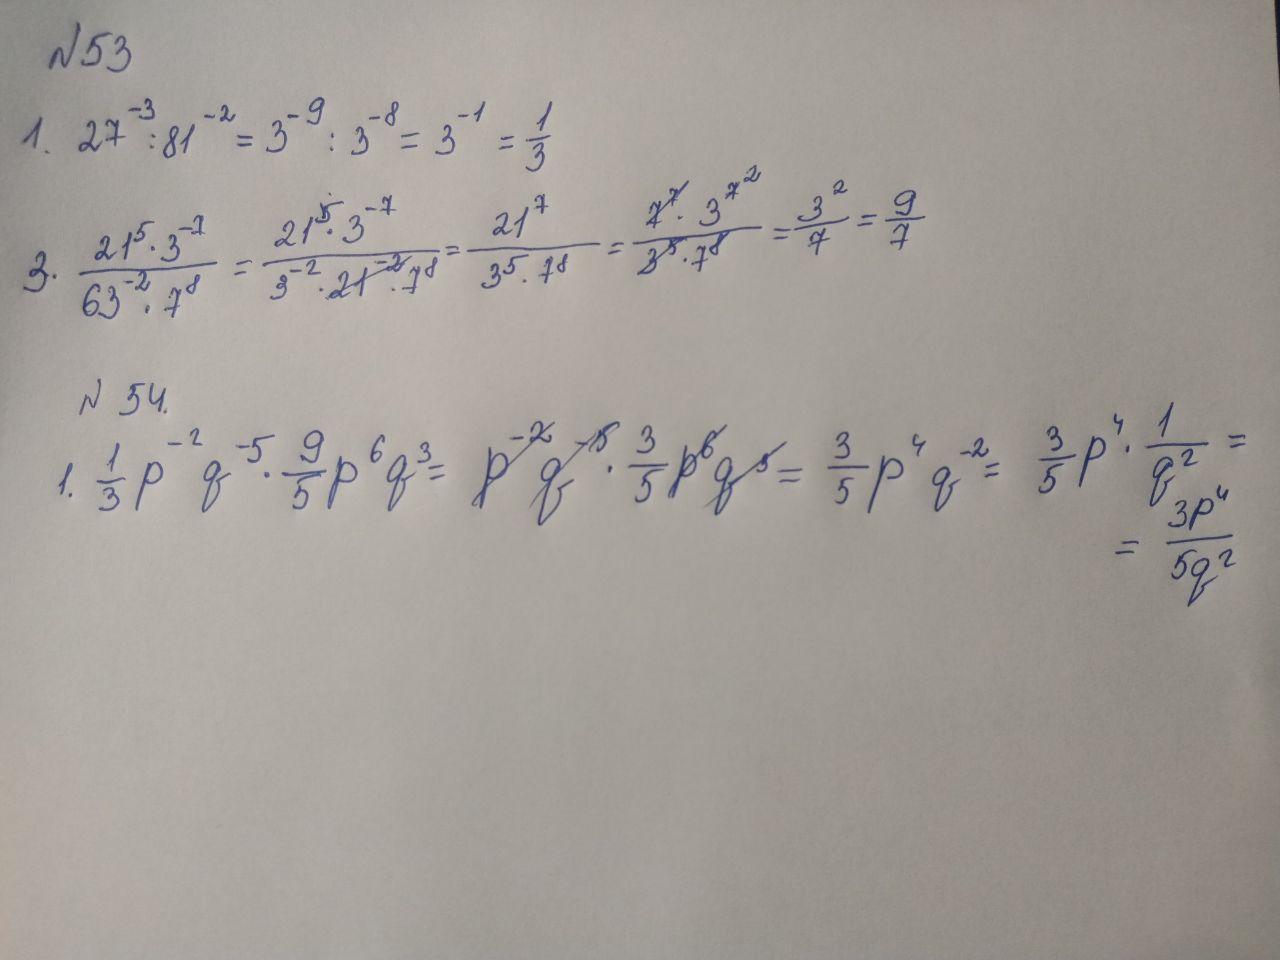 №53
1. 27⁻³ : 81⁻² = 3⁻⁹ : 3⁻⁸ = 3⁻¹ = 1/3
3. (21⁵ · 3⁻⁷)/(63⁻² · 7⁸) = (21⁵ · 3⁻⁷)/(3⁻² · 21⁻² · 7⁸) = 21⁷/(3⁵ · 7⁸) = (7⁷ · 3⁷ ²)/(3⁵ · 7⁸) = 3²/7 = 9/7
№ 54.
1. 1/3 p⁻² q⁻⁵ · 9/5 p⁶ q³ = p⁻² q⁻⁵ · 3/5 p⁶ q³ = 3/5 p⁴ q⁻² = 3/5 p⁴ · 1/q² =
= 3p⁴/5q²